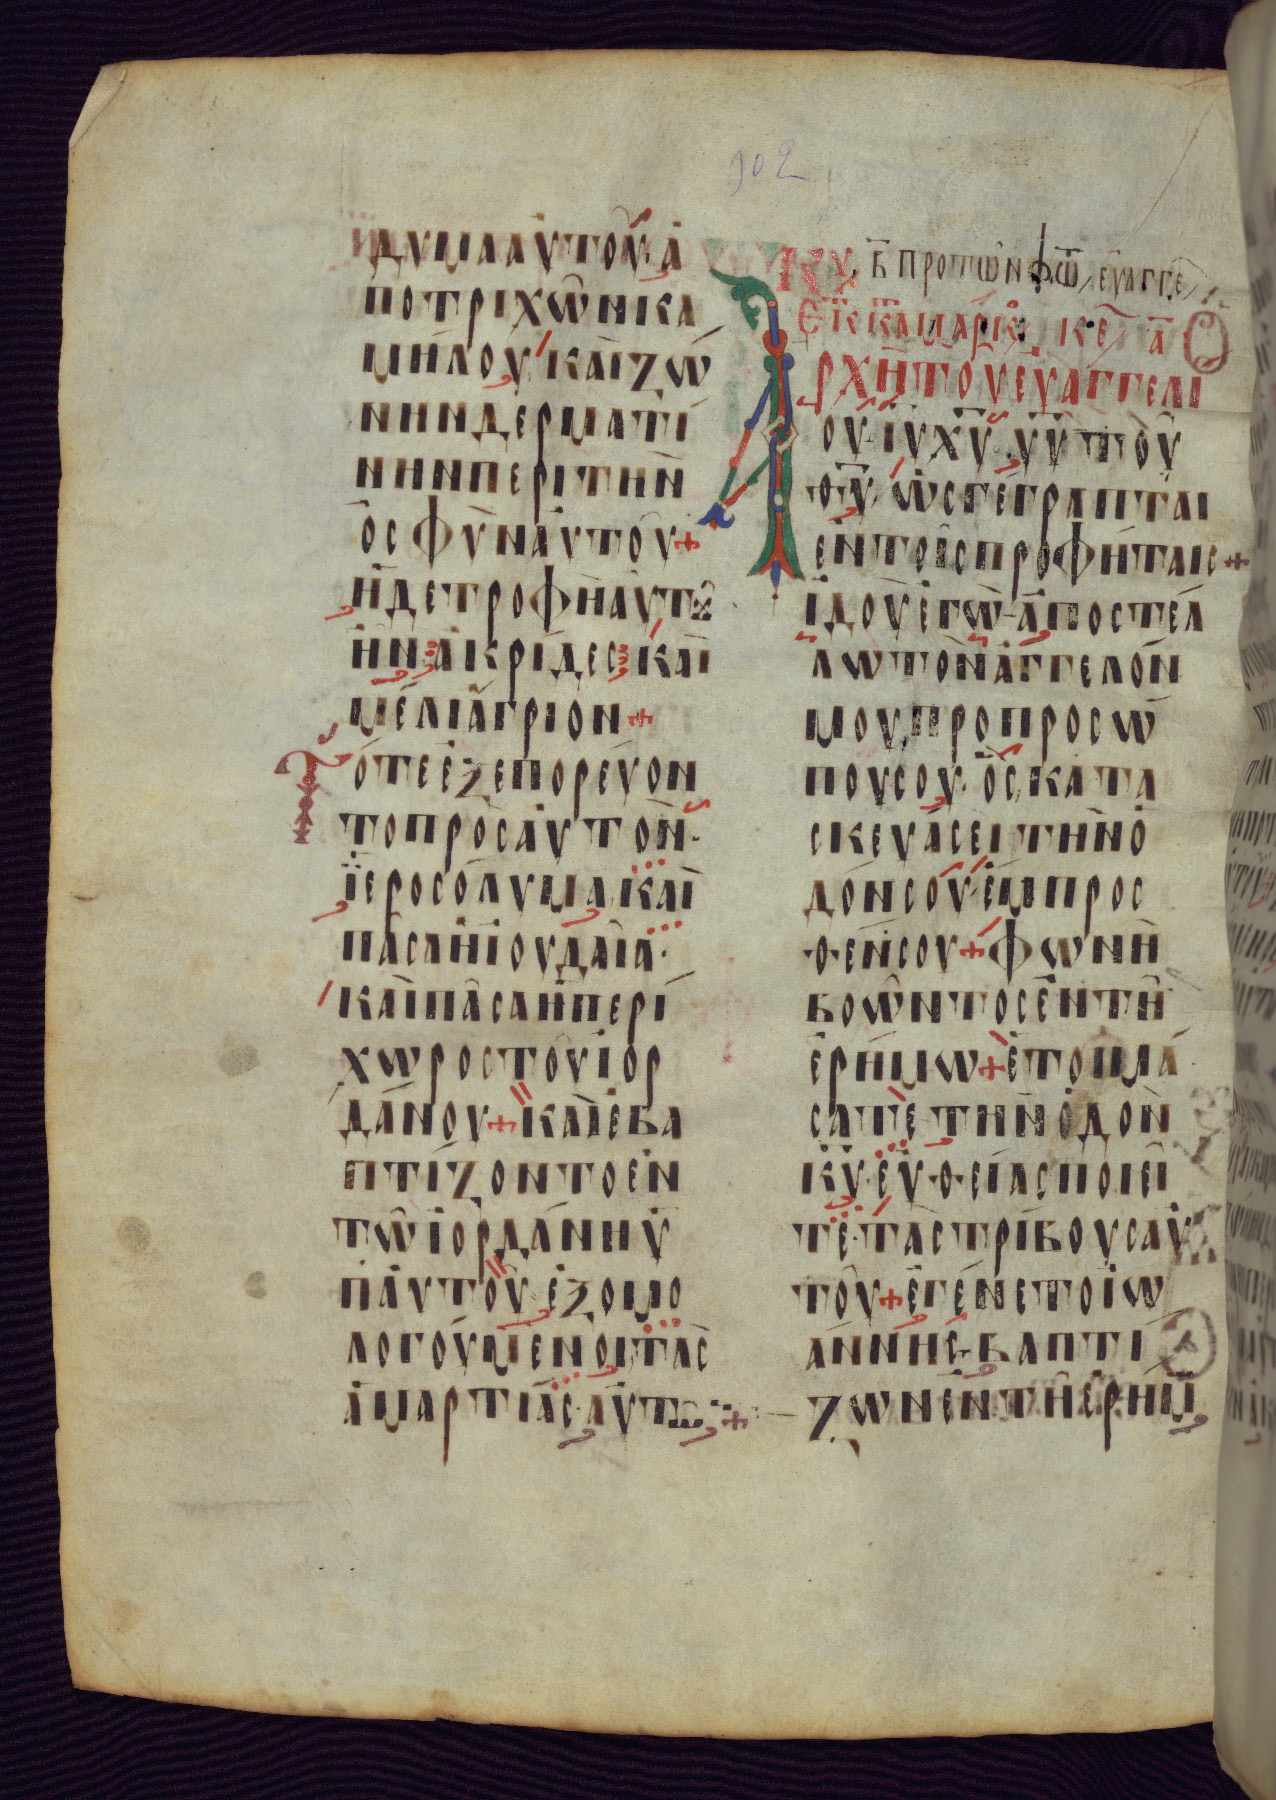 102
ΔΥΜΑ ΑΥΤΟΥ· Α
ΠΟ ΤΡΙΧΩΝ ΚΑ
ΜΗΛΟΥ ΚΑΙ ΖΩ
ΝΗΝ ΔΕΡΜΑΤΙ
ΝΗΝ ΠΕΡΙ ΤΗΝ
ΟΣΦΥΝ ΑΥΤΟΥ +
Η ΔΕ ΤΡΟΦΗ ΑΥΤΟΥ
ΗΝ ΑΚΡΙΔΕΣ ΚΑΙ
ΜΕΛΙ ΑΓΡΙΟΝ +
ΤΟΤΕ ΕΞΕΠΟΡΕΥΟΝ
ΤΟ ΠΡΟΣ ΑΥΤΟΝ·
ΪΕΡΟΣΟΛΥΜΑ, ΚΑΙ
ΠΑΣΑ Η ΙΟΥΔΑΙΑ·
ΚΑΙ ΠΑΣΑ Η ΠΕΡΙ
ΧΩΡΟΣ ΤΟΥ ΙΟΡ
ΔΑΝΟΥ + ΚΑΙ ΕΒΑ
ΠΤΙΖΟΝΤΟ ΕΝ
ΤΩ ΙΟΡΔΑΝΗ Υ
Π ΑΥΤΟΥ ΕΞΟΜΟ
ΛΟΓΟΥΜΕΝΟΙ ΤΑΣ
ΑΜΑΡΤΙΑΣ ΑΥΤΩ +
ΚΥ, Β ΠΡΟ ΤΩΝ ΦΩΤ ΕΥΑΓΓΕ
ΕΚ Κ̅Τ ΜΑΡΚ ΚΕ Α
ΑΡΧΗ ΤΟΥ ΕΥΑΓΓΕΛΙ
ΟΥ· Ι̅Υ̅ Χ̅Υ̅· Υ̅Υ̅ ΤΟΥ
Θ̅Υ̅, ΩΣ ΓΕΓΡΑΠΤΑΙ
ΕΝ ΤΟΙΣ ΠΡΟΦΗΤΑΙΣ +
ΙΔΟΥ ΕΓΩ ΑΠΟΣΤΕΛ
ΛΩ ΤΟΝ ΑΓΓΕΛΟΝ
ΜΟΥ, ΠΡΟ ΠΡΟΣΩ
ΠΟΥ ΣΟΥ· ΟΣ ΚΑΤΑ
ΣΚΕΥΑΣΕΙ ΤΗΝ Ο
ΔΟΝ ΣΟΥ· ΕΜΠΡΟΣ
ΘΕΝ ΣΟΥ + ΦΩΝΗ
ΒΟΩΝΤΟΣ ΕΝ ΤΗ
ΕΡΗΜΩ + ΕΤΟΙΜΑ
ΣΑΤΕ ΤΗΝ ΟΔΟΝ
Κ̅Υ̅· ΕΥΘΕΙΑΣ ΠΟΙΕΙ
ΤΕ· ΤΑΣ ΤΡΙΒΟΥΣ ΑΥ
ΤΟΥ + ΕΓΕΝΕΤΟ ΙΩ
ΑΝΝΗΣ ΒΑΠΤΙ
ΖΩΝ ΕΝ ΤΗ ΕΡΗΜ